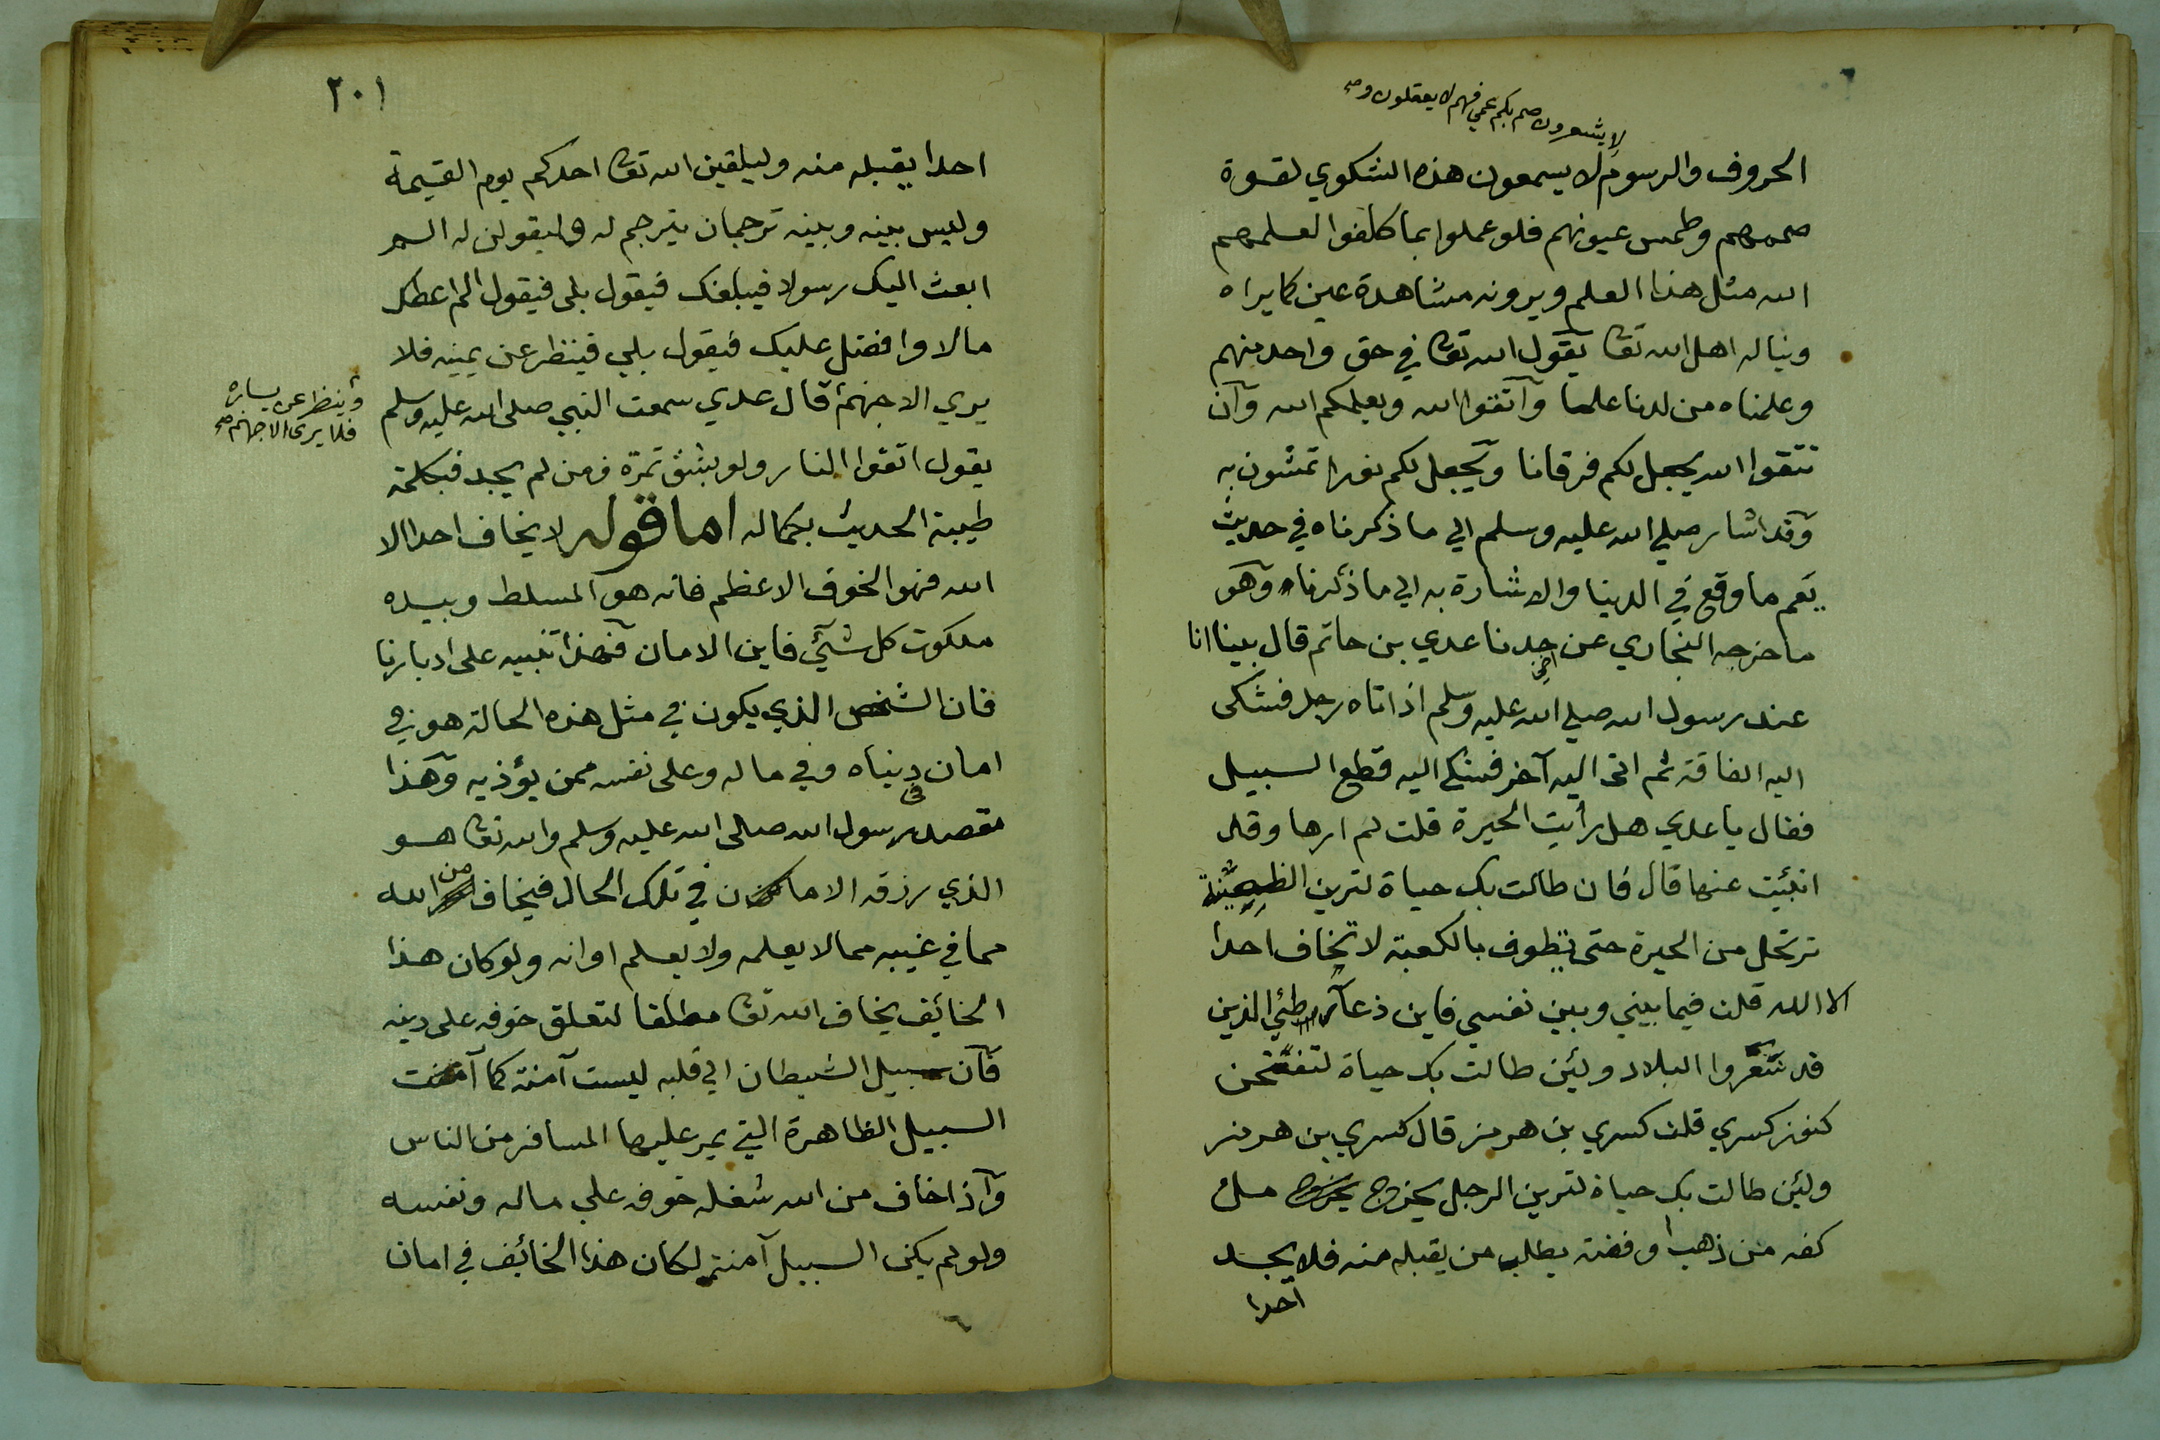 لا يشعرون صم بكم عمي فهم لا يعقلون و صح
الحروف والرسوم لا يسمعون هذه الشكوي لقوة
صممهم وطمس عيونهم فلو عملوا بما كلفوا لعلمهم
الله مثل هذا العلم ويرونه مشاهدة عين كما يراه
ويناله اهل الله تعا يقول الله تعا في حق واحد منهم
وعلمناه من لدنا علما واتقوا الله ويعلمكم الله وان
تتقوا الله يجعل لكم فرقانا ويجعل لكم نورا تمشون به
وقد اشار صلي الله عليه وسلم الي ما ذكرناه في حديث
يعم ما وقع في الدنيا والاشارة به الي ما ذكرناه وهو
ما خرجه البخاري عن جدنا عدي بن حاتم قال بينا انا
عند رسول الله صلي الله عليه وسلم اذ اتاه رجل فشكى
اليه الفاقة ثم اتى اليه آخر فشكى اليه قطع السبيل
فقال يا عدي هل رأيت الحيرة قلت لم ارها وقد
انبئت عنها قال فان طالت بك حياة لترين الظعينة
ترتحل من الحيرة حتى تطوف بالكعبة لا تخاف احدا
الا الله قلت فيما بيني وبين نفسي فاين ذعار طئي الذين
قد سعروا البلاد ولئن طالت بك حياة لتفتحن
كنوز كسري قلت كسري بن هرمز قال كسري بن هرمز
ولئن طالت بك حياة لترين الرجل يخرج ملء
كفه من ذهب او فضة يطلب من يقبله منه فلا يجد
احدا
٢٠١
احدا يقبله منه وليلقين الله تعا احدكم يوم القيمة
وليس بينه وبينه ترجمان يترجم له وليقولن له الم
ابعث اليك رسولا فيبلغك فيقول بلى فيقول الم اعطك
مالا وافضل عليك فيقول بلي فينظر عن يمينه فلا
يري الا جهنم قال عدي سمعت النبي صلى الله عليه وسلم
وينظر عن يساره
فلا يرى الا جهنم صح
يقول اتقوا النار ولو بشق تمرة فمن لم يجد فبكلمة
طيبة الحديث بكماله اما قوله لا يخاف احدا الا
الله فهو الخوف الاعظم فانه هو المسلط وبيده
ملكوت كل شئ فاين الامان فهذا تنبيه على ادبارنا
فان الشخص الذي يكون في مثل هذه الحالة هو في
امان في دنياه وفي ماله وعلى نفسه ممن يؤذيه وهذا
مقصد رسول الله صلى الله عليه وسلم والله تعا هو
الذي رزقه الامان في تلك الحال فيخاف من الله
مما في غيبه مما لا يعلمه ولا يعلم اوانه ولو كان هذا
الخائف يخاف الله تعا مطلقا لتعلق خوفه على دينه
فان سبيل الشيطان الي قلبه ليست آمنة كما آمنت
السبيل الظاهرة التي يمر عليها المسافر من الناس
واذا خاف من الله شغله خوفه علي ماله ونفسه
ولو لم يكن السبيل آمنة لكان هذا الخائف في امان